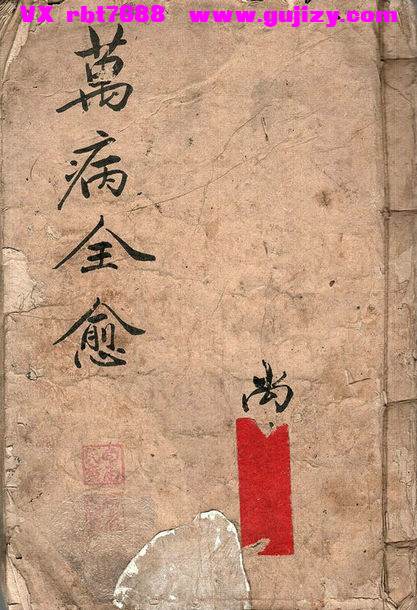 VX rbt7888 www.gujizy.com
萬病全愈
尚